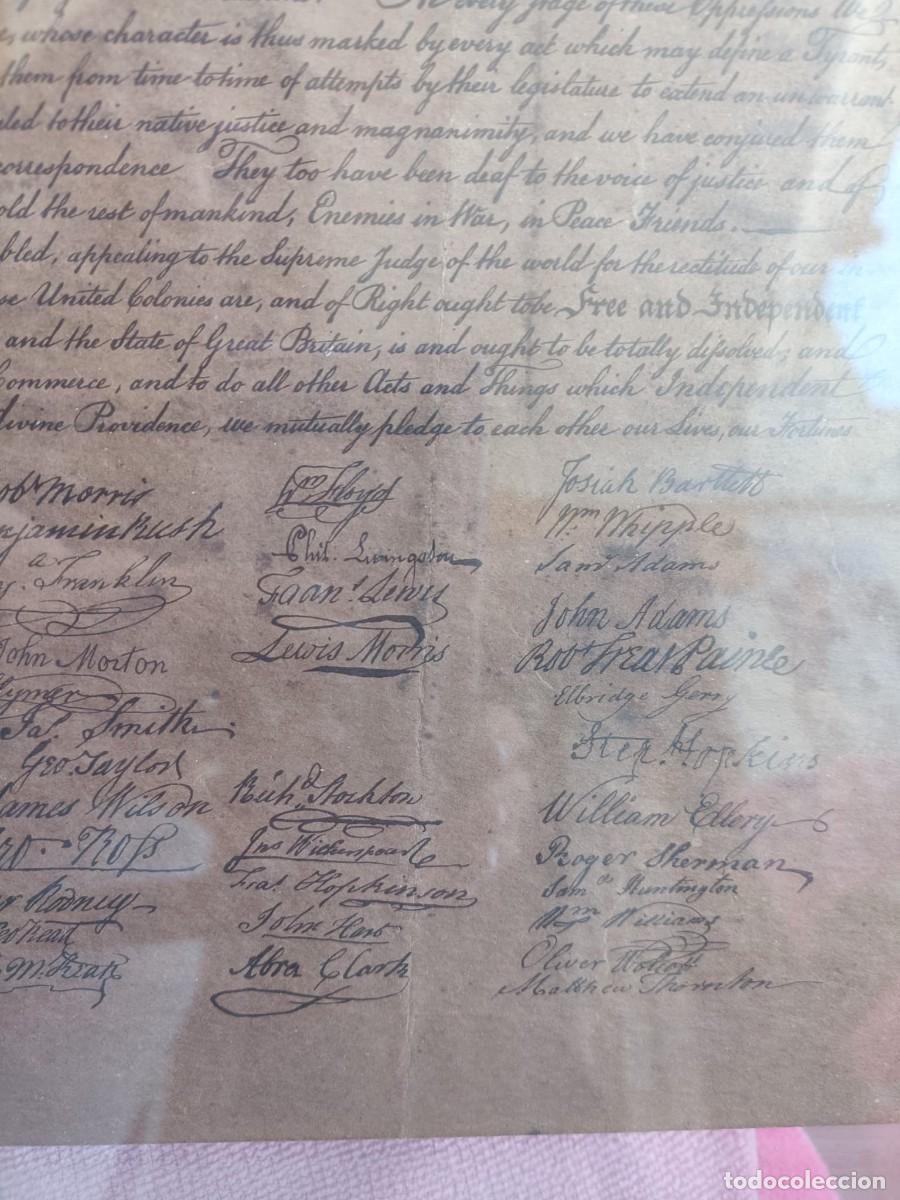 In every stage of these Oppressions We
whose character is thus marked by every act which may define a Tyrant,
them from time to time of attempts by their legislature to extend an unwarrant
aled to their native justice and magnanimity, and we have conjured them
correspondence They too have been deaf to the voice of justice and of
old the rest of mankind, Enemies in War, in Peace Friends.
bled, appealing to the Supreme Judge of the world for the rectitude of our in
se United Colonies are, and of Right ought to be Free and Independent
and the State of Great Britain, is and ought to be totally dissolved; and
Commerce, and to do all other Acts and Things which Independent
divine Providence, we mutually pledge to each other our Lives, our Fortunes
obt Morris
njamin Rush
Franklin
John Morton
lymer
Jas. Smith
Geo. Taylor
James Wilson
eo. Ross
ar Rodney
eo Read
M:Kean
Wm Floyd
Phil. Livingston
Frans. Lewis
Lewis Morris
Richd. Stockton
Jno Witherspoon
Fras. Hopkinson
John Hart
Abra Clark
Josiah Bartlett
Wm Whipple
Saml Adams
John Adams
Robt Treat Paine
Elbridge Gerry
Step. Hopkins
William Ellery
Roger Sherman
Samel Huntington
Wm Williams
Oliver Wolcott
Matthew Thornton
todocoleccion